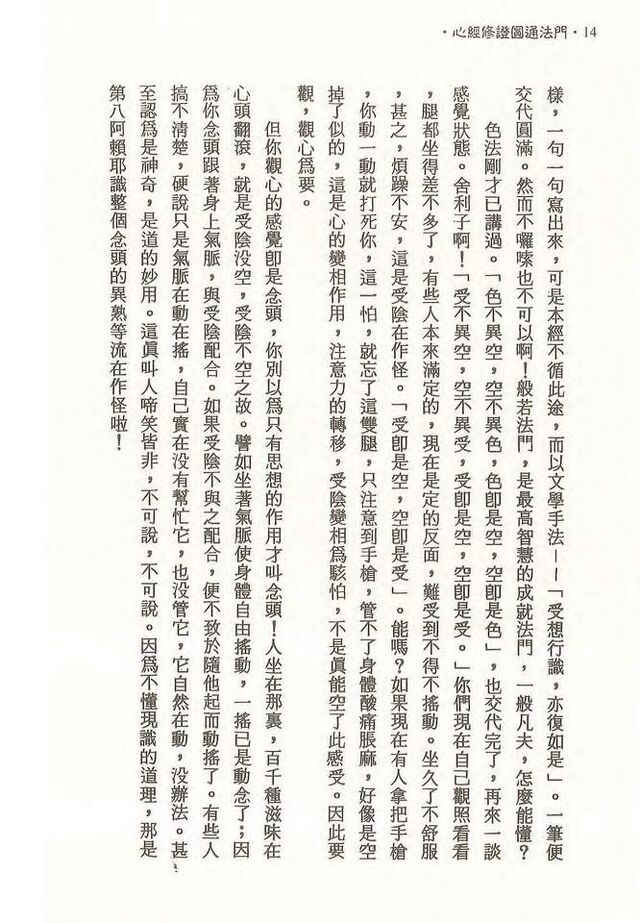 ·心經修證圓通法門·14
樣，一句一句寫出來，可是本經不循此途，而以文學手法——「受想行識，亦復如是」。一筆便
交代圓滿。然而不囉嗦也不可以啊！般若法門，是最高智慧的成就法門，一般凡夫，怎麼能懂？
色法剛才已講過。「色不異空，空不異色，色卽是空，空卽是色」，也交代完了，再來一談
感覺狀態。舍利子啊！「受不異空，空不異受，受卽是空，空卽是受。」你們現在自己觀照看看
，腿都坐得差不多了，有些人本來滿定的，現在是定的反面，難受到不得不搖動。坐久了不舒服
，甚之，煩躁不安，這是受陰在作怪。「受卽是空，空卽是受」。能嗎？如果現在有人拿把手槍
，你動一動就打死你，這一怕，就忘了這雙腿，只注意到手槍，管不了身體酸痛脹麻，好像是空
掉了似的，這是心的變相作用，注意力的轉移，受陰變相爲駭怕，不是眞能空了此感受。因此要
觀，觀心爲要。
但你觀心的感覺卽是念頭，你別以爲只有思想的作用才叫念頭！人坐在那裏，百千種滋味在
心頭翻滾，就是受陰没空，受陰不空之故。譬如坐著氣脈使身體自由搖動，一搖已是動念了；因
爲你念頭跟著身上氣脈，與受陰配合。如果受陰不與之配合，便不致於隨他起而動搖了。有些人
搞不淸楚，硬說只是氣脈在動在搖，自己實在没有幫忙它，也没管它，它自然在動，没辦法。甚
至認爲是神奇，是道的妙用。這眞叫人啼笑皆非，不可說，不可說。因爲不懂現識的道理，那是
第八阿賴耶識整個念頭的異熟等流在作怪啦！